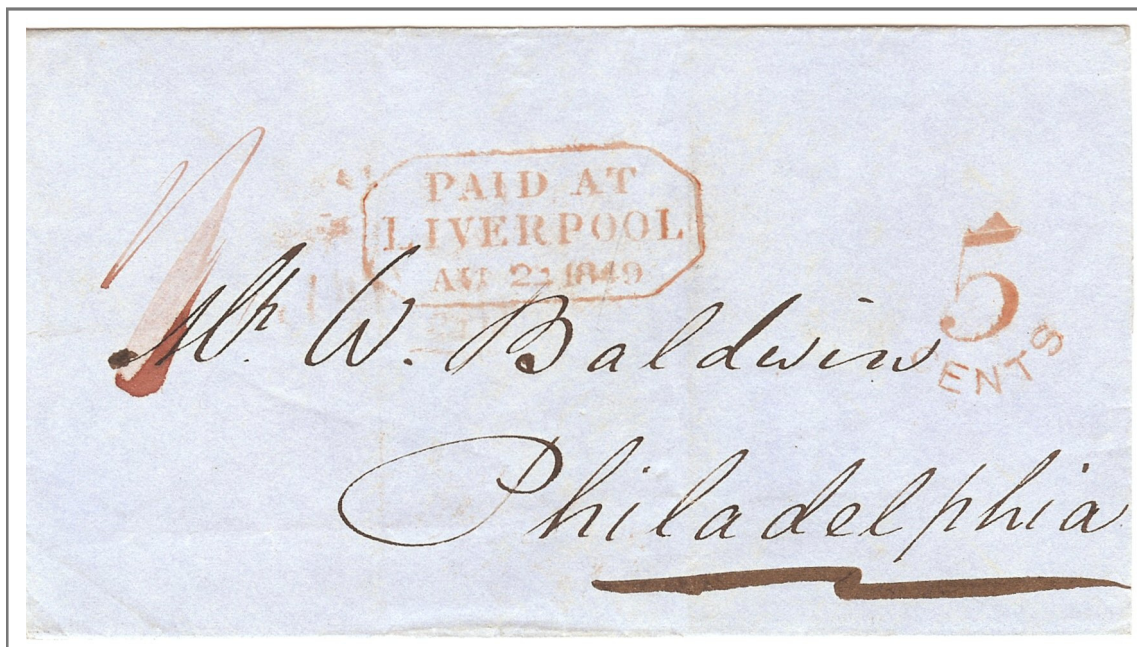 PAID AT
LIVERPOOL
AU 1849
5
CENTS
Mr. W. Baldwin
Philadelphia